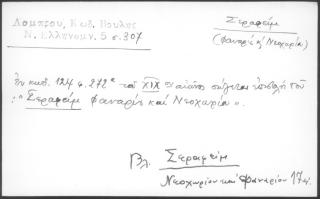 Λάμπρου, Κωδ. Βουλῆς
Ν. Ἑλληνομν. 5 σ. 307
Σεραφείμ
(Φαναρίου κ' Νεοχωρίου)
Ἐν κωδ. 124 φ. 272α τοῦ XIX αἰῶνος σώζεται ἐπιστολὴ τοῦ
"Σεραφεὶμ Φαναρίου καὶ Νεοχωρίου".
Βλ. Σεραφείμ
Νεοχωρίου καὶ Φαναρίου